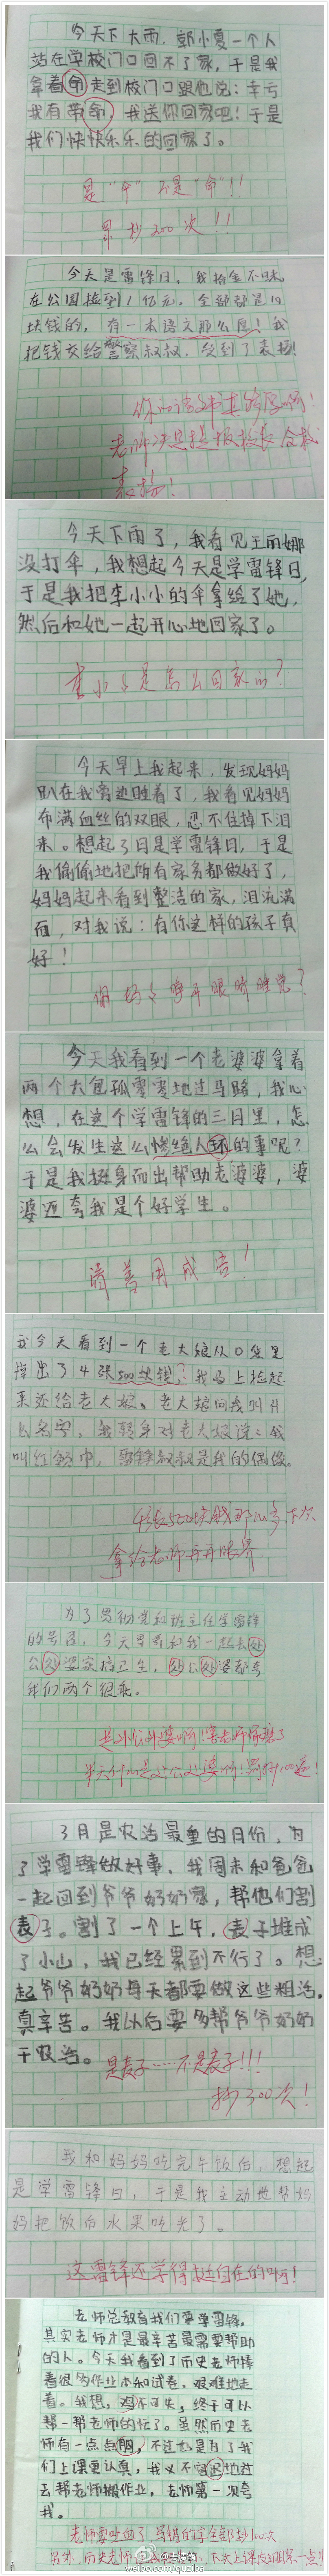 今天下大雨,郭小夏一个人
站在学校门口回不了家,于是我
拿着命走到校门口跟他说:幸亏
我有带命,我送你回家吧!于是
我们快快乐乐的回家了。
是“伞”不是“命”!!
罚抄200次!!
今天是雷锋日,我拾金不昧
在公园捡到1亿元,全部都是10
块钱的,有一本语文那么厚!我
把钱交给警察叔叔,受到了表扬!
你的语文书真够厚啊!
老师决定提报校长合校
表扬!
今天下雨了,我看见王丽娜
没打伞,我想起今天是学雷锋日,
于是我把李小小的伞拿给了她,
然后和她一起开心地回家了。
李小小是怎么回家的?
今天早上我起来,发现妈妈
趴在我旁边睡着了,我看见妈妈
布满血丝的双眼,忍不住掉下泪
来。想起3月是学雷锋日,于是
我偷偷地把所有家务都做好了,
妈妈起来看到整洁的家,泪流满
面,对我说:有你这样的孩子真
好!
你妈妈睁开眼睛睡觉?
今天我看到一个老婆婆拿着
两个大包孤零零地过马路,我心
想,在这个学雷锋的三月里,怎
么会发生这么惨绝人环的事呢?
于是我挺身而出帮助老婆婆,婆
婆还夸我是个好学生。
请善用成语!
我今天看到一个老大娘从口袋里
掉出了4张500块钱?我马上捡起
来还给老大娘、老大娘问我叫什
么名字,我转身对老大娘说:我
叫红领巾,雷锋叔叔是我的偶像。
4张500块钱那么多下次
拿给老师开开眼界
为了贯彻党和班主任学雷锋
的号召,今天哥哥和我一起去处
公处婆家搞卫生,处公处婆都夸
我们两个很乖。
是外公外婆啊!害老师愣了
半天什么是处公处婆啊!罚抄100遍!
3月是农活最重的月份,为
了学雷锋做好事,我周末和爸爸
一起回到爷爷奶奶家,帮他们割
表子。割了一个上午,表子堆成
了小山,我已经累到不行了。想
起爷爷奶奶每天都要做这些粗活,
真辛苦。我以后要多帮爷爷奶奶
干农活。
是麦子……不是表子!!!
抄300次!
我和妈妈吃完午饭后,想起
是学雷锋日,于是我主动地帮妈
妈把饭后水果吃光了。
这雷锋还学得挺自在的啊!
老师总教育我们要学雷锋,
其实老师才是最辛苦最需要帮助
的人。今天我看到了历史老师捧
着很多作业本和试卷,艰难地走
着。我想,鸡不可失,终于可以
帮一帮老师的忙了。虽然历史老
师有一点点胸,不过也是为了我
们上课更认真,我义不容迟地过
去帮老师搬作业,老师第一次夸
我。
老师要吐血了
weibo.com/qusiba